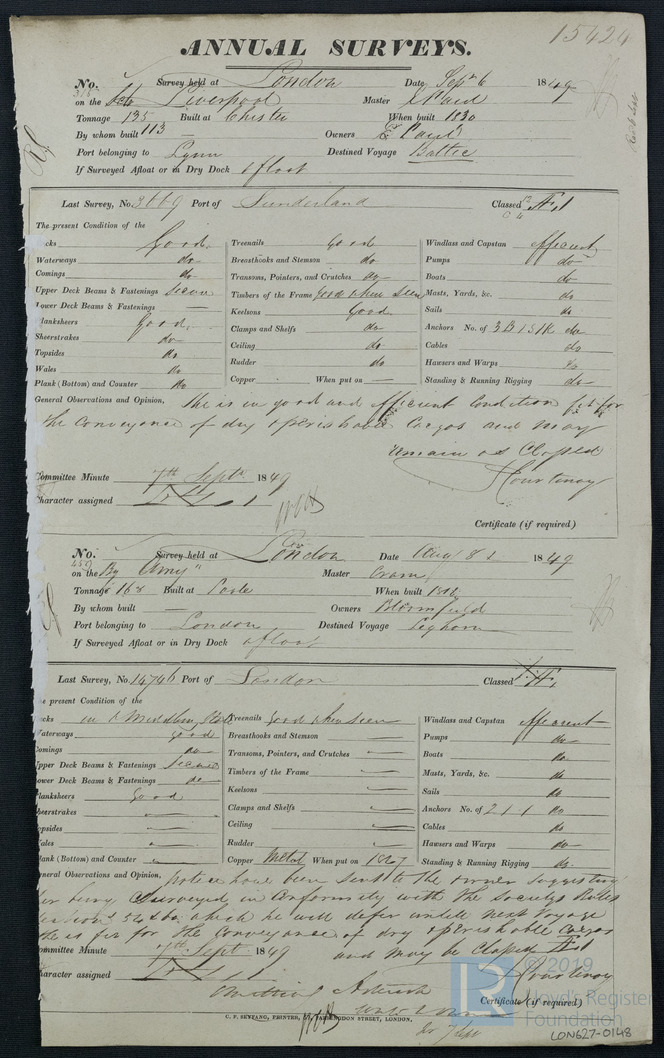 15424
ANNUAL SURVEYS.
No. Survey held at London Date Sept 6 1849
on the Liverpool Master
Tonnage 135 Built at Chester When built 1830
By whom built 113 — Owners
Port belonging to Lynn Destined Voyage Baltic
If Surveyed Afloat or in Dry Dock afloat
Last Survey, No. 3669 Port of Sunderland Classed Æ 1
The present Condition of the
cks Good Treenails good Windlass and Capstan efficient
Waterways do Breasthooks and Stemson do Pumps do
Comings do Transons, Pointers, and Crutches do Boats do
Upper Deck Beams & Fastenings Secure Timbers of the Frame good when seen Masts, Yards, &c. do
Lower Deck Beams & Fastenings — Keelsons Good Sails do
lanksheers Good Clamps and Shelfs do Anchors No. of 3 B 1 S 1 K do
Sheerstrakes do Ceiling do Cables do
Topsides do Rudder do Hawsers and Warps do
Wales do Copper When put on — Standing & Running Rigging do
Plank (Bottom) and Counter do
General Observations and Opinion, She is in good and efficient Condition fit for
the Conveyance of dry & perishable Cargos and may
remain as Classed
Courtenay
Committee Minute 7th Septr 1849
Character assigned Æ 1
Certificate (if required)
No. Survey held at London Date Aug 31 1849
on the Amy" Master
Tonnage 168 Built at Poole When built
By whom built — Owners Bloomfield
Port belonging to London Destined Voyage Leghorn
If Surveyed Afloat or in Dry Dock afloat
Last Survey, No. 14746 Port of London Classed Æ 1
e present Condition of the
cks in a Middling State Treenails good when seen Windlass and Capstan efficient
aterways good Breasthooks and Stemson — Pumps do
omings do Transons, Pointers, and Crutches — Boats do
pper Deck Beams & Fastenings Secure Timbers of the Frame — Masts, Yards, &c. do
ower Deck Beams & Fastenings do Keelsons — Sails do
lanksheers Good Clamps and Shelfs — Anchors No. of 2 1 1 do
heerstrakes — Ceiling — Cables do
opsides — Rudder — Hawsers and Warps do
ales — Copper Metal When put on 1847 Standing & Running Rigging do
lank (Bottom) and Counter —
eneral Observations and Opinion, Notice have been sent to the owner suggesting
her being Surveyed in Conformity with the Societys Rules
which he will defer untill next Voyage
She is fit for the Conveyance of dry & perishable Cargos
and may be Classed Æ 1
Courtenay
ommittee Minute 7th Septr 1849
haracter assigned Æ 1
Certificate (if required)
C. F. SEYFANG, PRINTER, FARRINGDON STREET, LONDON.
© 2019
Lloyd's Register
Foundation
LON627-0148